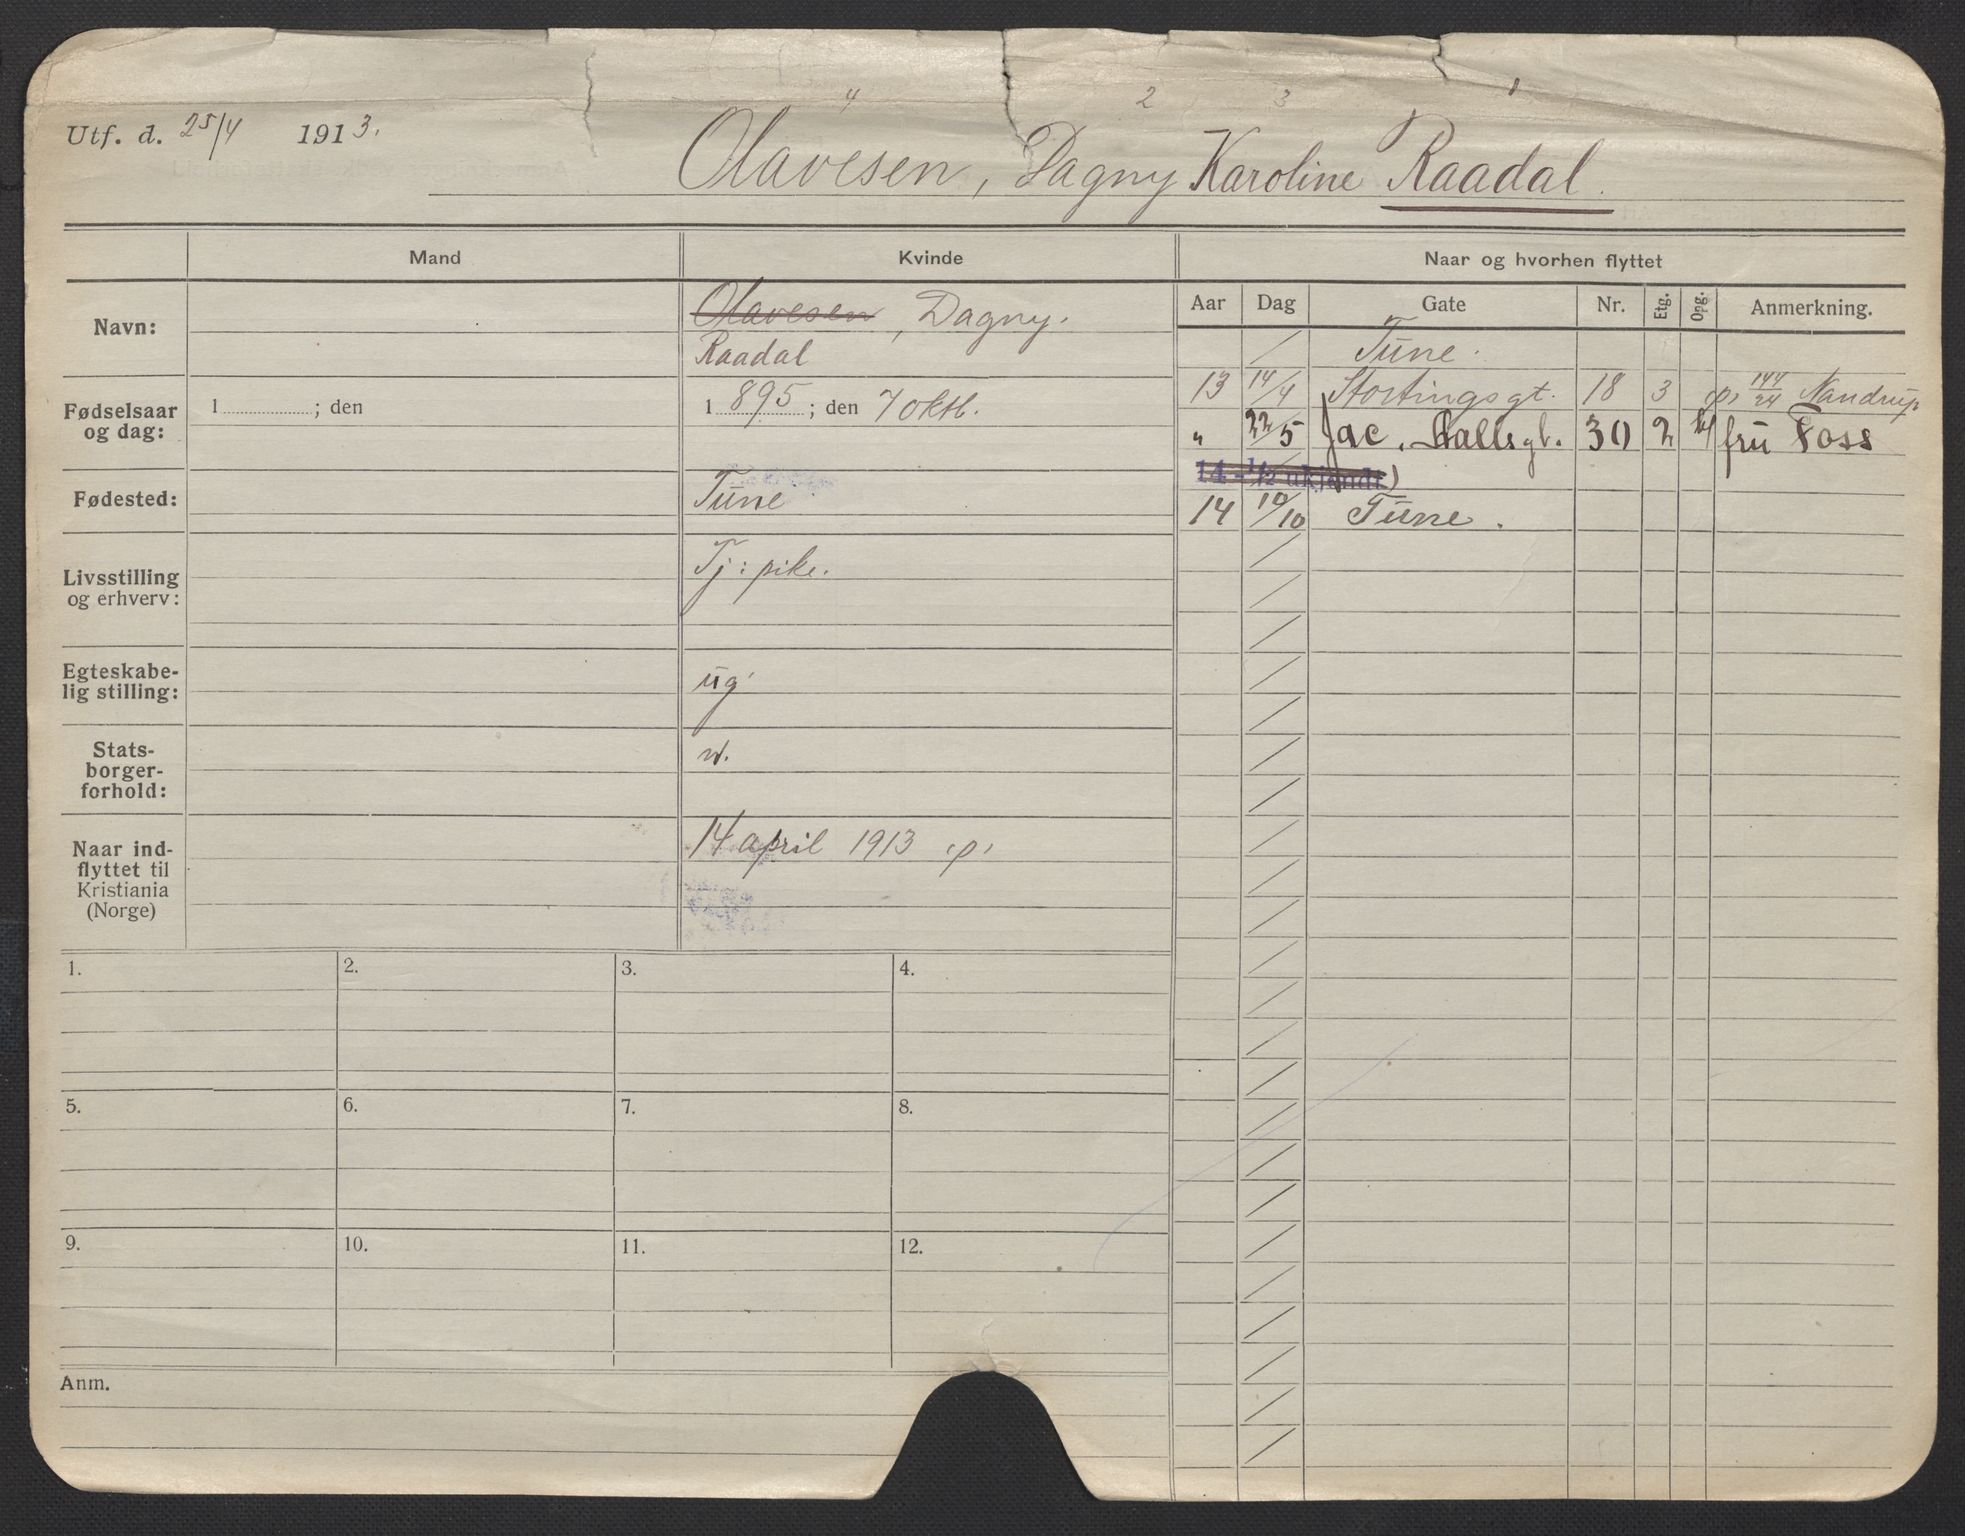 4 2 3 1
Utf. d. 25/4 1913.
Olavesen, Dagny Karoline Raadal.
Mand Kvinde Naar og hvorhen flyttet
Aar Dag Gate Nr. Etg. Opg. Anmerkning.
Navn: Olavesen, Dagny.
Raadal
Fødselsaar og dag: 1 ; den 1 895 ; den 7 oktb.
Fødested: Tune
Livsstilling og erhverv: Tj: pike.
Egteskabe-
lig stilling: ug.
Stats-
borger-
forhold: n.
Naar ind-
flyttet til
Kristiania
(Norge) 14 april 1913 p
/ Tune.
13 14/4 Stortingsgt. 18 3 p, 144/24 Nandrup
" 22/5 Jac. Aallsgt. 30 2 fru Foss
14 - 1/2 ukjendt)
14 10/10 Tune.
1. 2. 3. 4.
5. 6. 7. 8.
9. 10. 11. 12.
Anm.